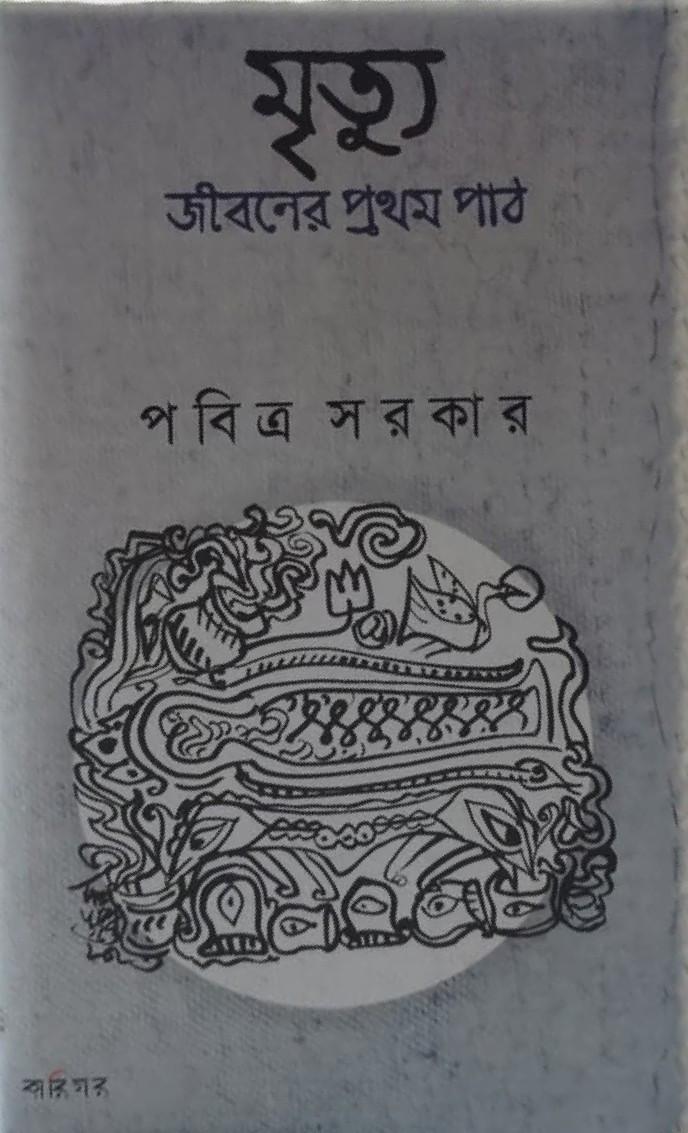 মৃত্যু
জীবনের প্রথম পাঠ
পবিত্র সরকার
কারিগর